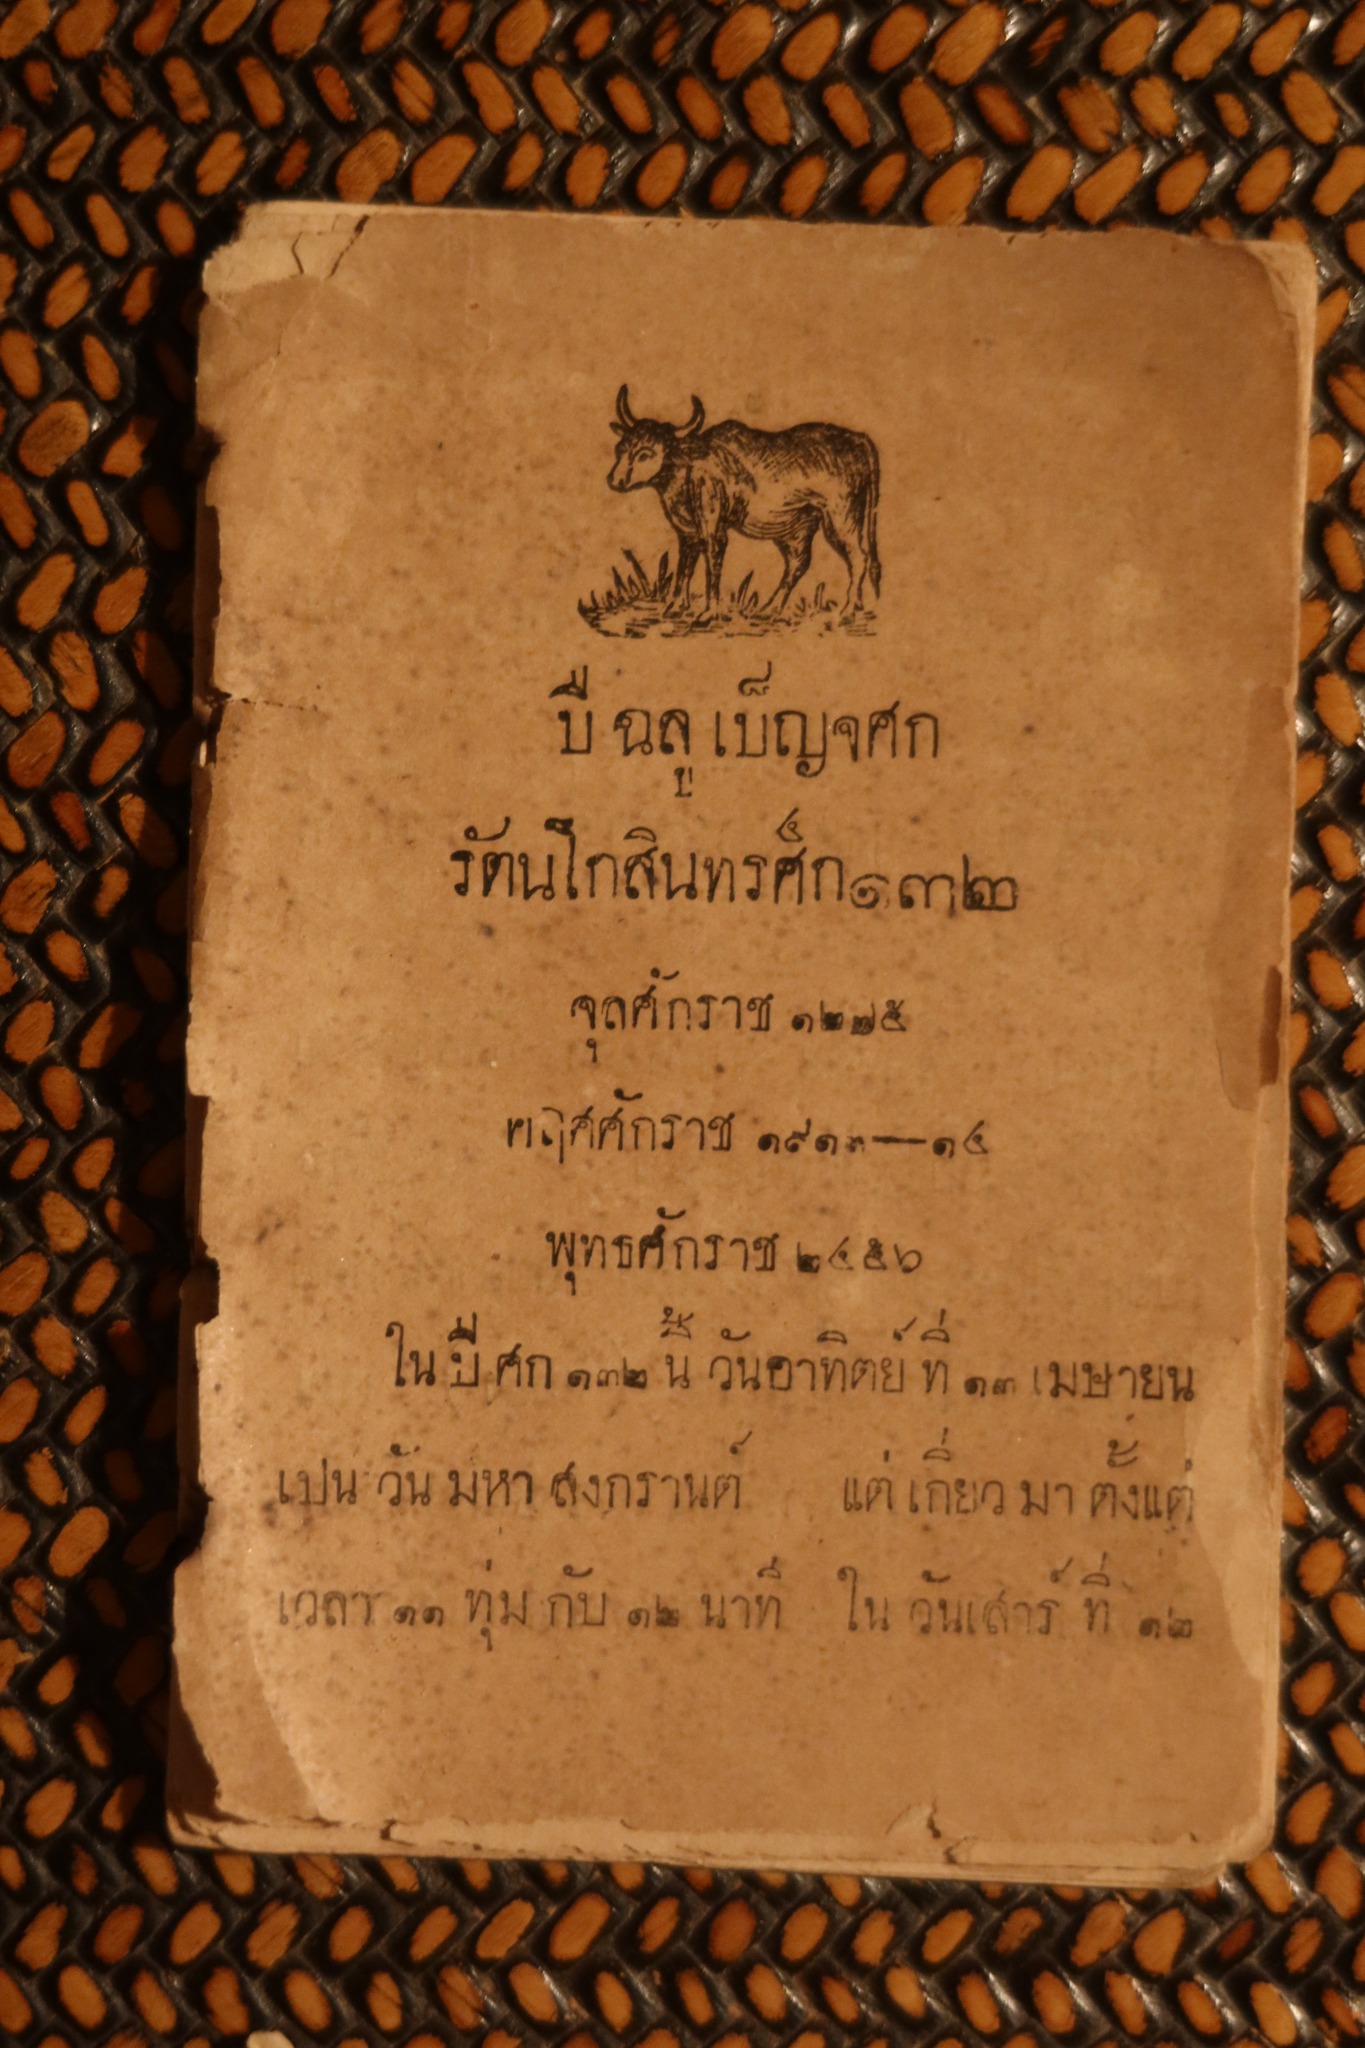 ปี ฉลู เบ็ญจศก
รัตนโกสินทรศ๊ก ๑๓๒
จุลศักราช ๑๒๗๕
คฤศศักราช ๑๙๑๓—๑๔
พุทธศักราช ๒๔๕๖
ในปี ศก ๑๓๒ นี้ วันอาทิตย์ ที่ ๑๓ เมษายน
เปน วัน มหา สงกรานต์ แต่ เกี่ยว มา ตั้งแต่
เวลา ๑๑ ทุ่ม กับ ๑๒ นาที ใน วันเสาร์ ที่ ๑๒